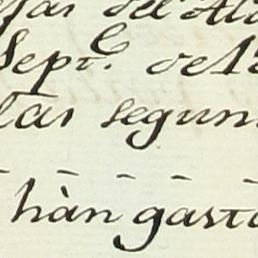 del
Sept.e de 1
las segun
hàn gasta